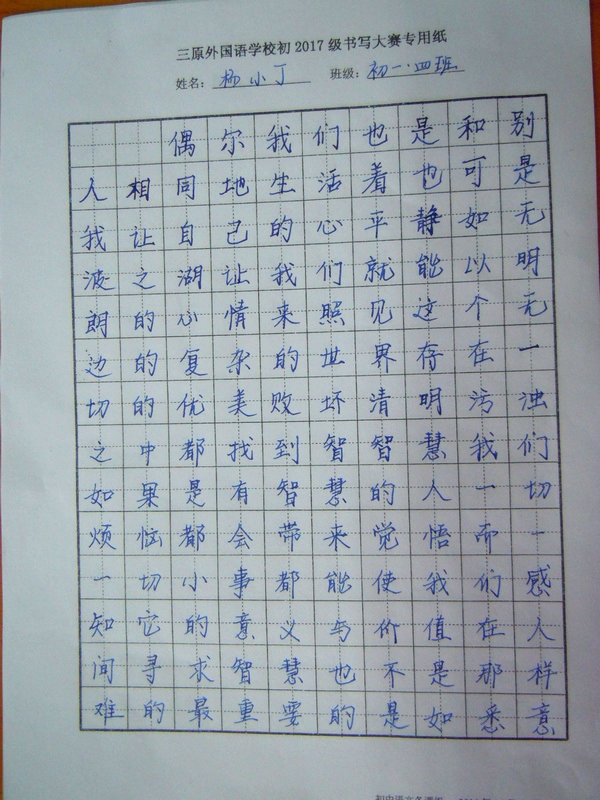 三原外国语学校初2017级书写大赛专用纸
姓名：杨小丁 班级：初一.四班
偶尔我们也是和别
人相同地生活着也可是
我让自己的心平静如无
波之湖让我们就能以明
朗的心情来照见这个无
边的复杂的世界存在一
切的优美败坏清明污浊
之中都找到智智慧我们
如果是有智慧的人一切
烦恼都会带来觉悟而一
一切小事都能使我们感
知它的意义与价值在人
间寻求智慧也不是那样
难的最重要的是如悉意